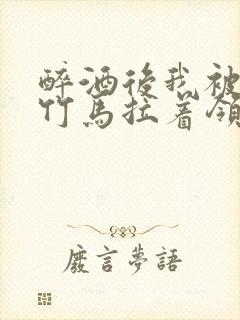 醉酒後我被
竹馬拉著領
廢言夢語